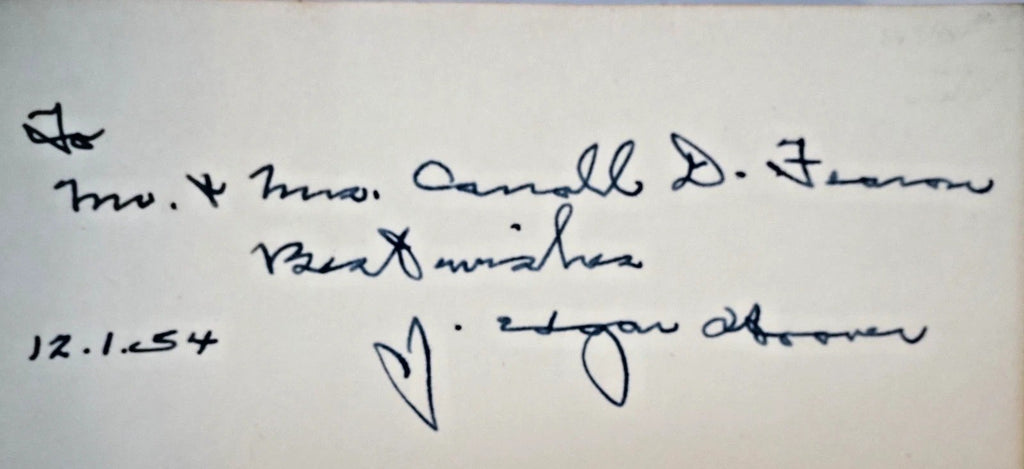 To
Mr. & Mrs. Carroll D. Fearon
Best wishes
J. Edgar Hoover
12.1.54